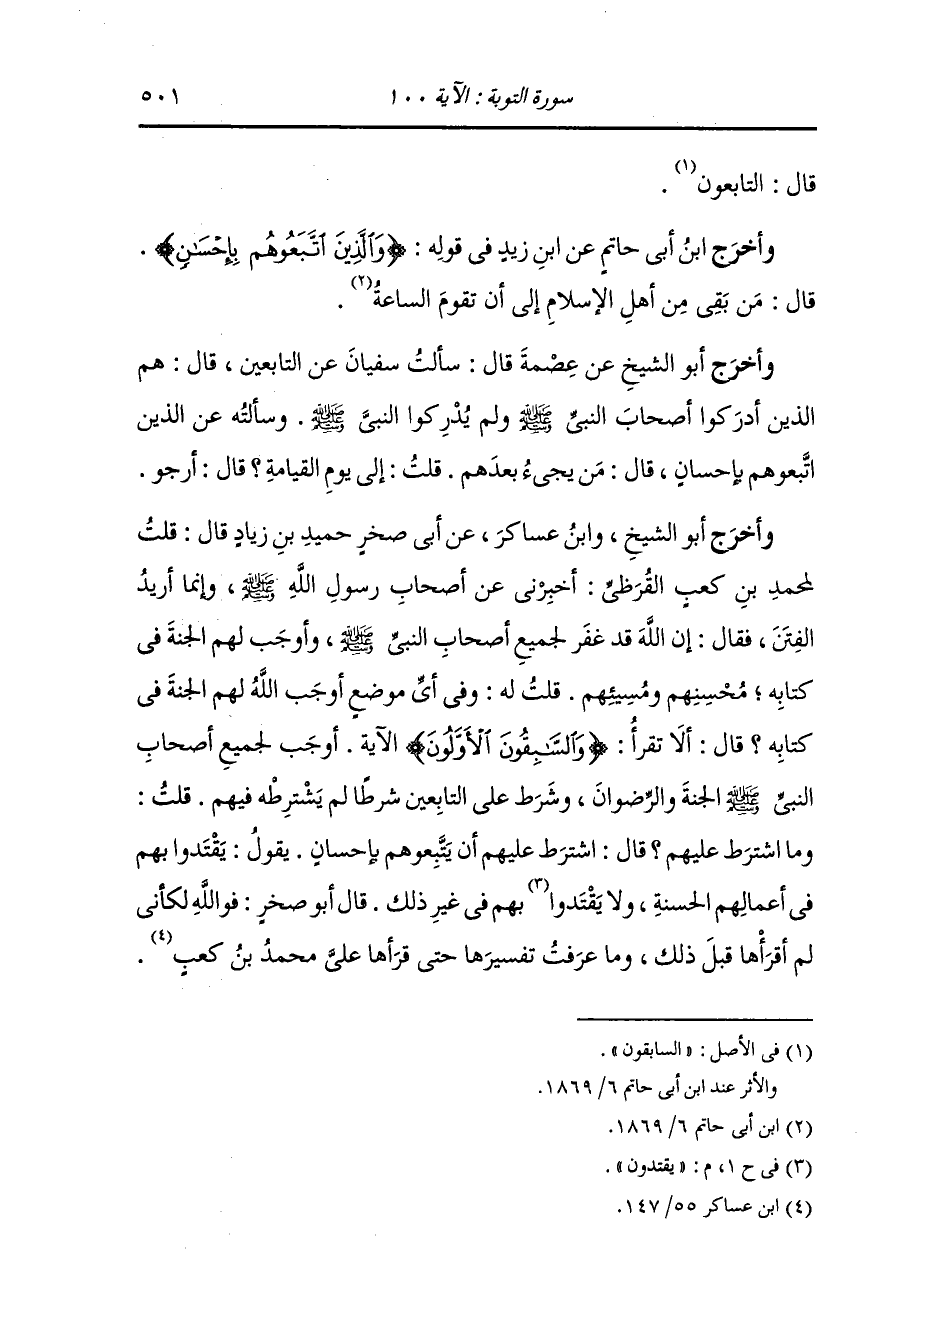 سورة التوبة : الآية ١٠٠ ٥٠١
قال : التابعون(١) .
وأخرَج ابنُ أبى حاتمٍ عن ابنِ زيدٍ فى قولِه : ﴿وَٱلَّذِينَ ٱتَّبَعُوهُم بِإِحْسَـٰنٍ﴾ .
قال : مَن بَقِى مِن أهلِ الإسلامِ إلى أن تقومَ الساعةُ(٢) .
وأخرَج أبو الشيخِ عن عِصْمةَ قال : سألتُ سفيانَ عن التابعين ، قال : هم
الذين أدرَكوا أصحابَ النبىِّ ﷺ ولم يُدْرِكوا النبىَّ ﷺ . وسألتُه عن الذين
اتَّبعوهم بإحسانٍ ، قال : مَن يجىءُ بعدَهم . قلتُ : إلى يومِ القيامةِ ؟ قال : أرجو .
وأخرَج أبو الشيخِ ، وابنُ عساكرَ ، عن أبى صخرٍ حميدِ بنِ زيادٍ قال : قلتُ
لمحمدِ بنِ كعبٍ القُرَظىِّ : أخبِرْنى عن أصحابِ رسولِ اللَّهِ ﷺ ، وإنما أريدُ
الفِتَنَ ، فقال : إن اللَّهَ قد غفَر لجميعِ أصحابِ النبىِّ ﷺ ، وأوجَب لهم الجنةَ فى
كتابِه ؛ مُحْسِنِهم ومُسِيئِهم . قلتُ له : وفى أىِّ موضعٍ أوجَب اللَّهُ لهم الجنةَ فى
كتابِه ؟ قال : ألَا تقرأُ : ﴿وَٱلسَّـٰبِقُونَ ٱلْأَوَّلُونَ﴾ الآية . أوجَب لجميعِ أصحابِ
النبىِّ ﷺ الجنةَ والرِّضوانَ ، وشَرَط على التابِعين شرطًا لم يَشْترِطْه فيهم . قلتُ :
وما اشترَط عليهم ؟ قال : اشترَط عليهم أن يَتَّبِعوهم بإحسانٍ . يقولُ : يَقْتَدوا بهم
فى أعمالِهم الحسنةِ ، ولا يَقْتَدوا(٣) بهم فى غيرِ ذلك . قال أبو صخرٍ : فواللَّهِ لكأنى
لم أقرَأْها قبلَ ذلك ، وما عرَفتُ تفسيرَها حتى قرَأها علىَّ محمدُ بنُ كعبٍ(٤) .
(١) فى الأصل : «السابقون» .
والأثر عند ابن أبى حاتم ٦/ ١٨٦٩.
(٢) ابن أبى حاتم ٦/ ١٨٦٩.
(٣) فى ح ١، م : «يقتدون» .
(٤) ابن عساكر ٥٥/ ١٤٧.